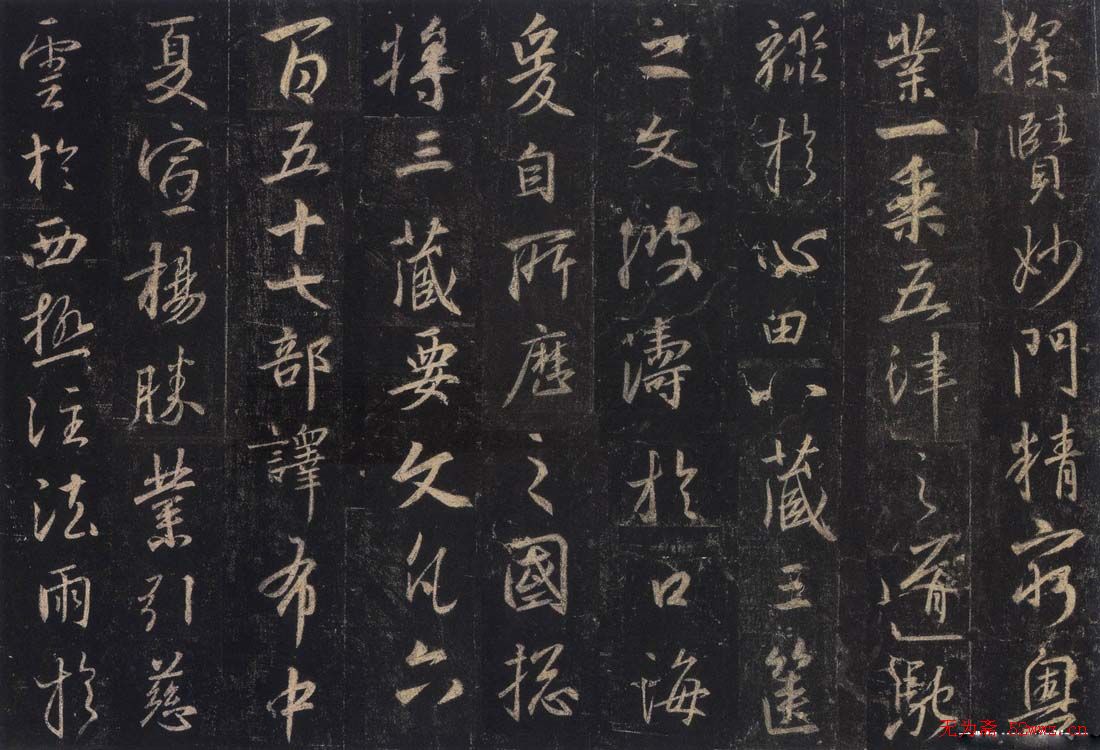 探賾妙門精窮奧
業一乘五津之道馳
驟於心田八藏三篋
之文波濤於口海
爰自所歷之國揔
將三藏要文凡六
百五十七部譯布中
夏宣揚勝業引慈
雲於西極注法雨於
无为斋.52wwz.cn